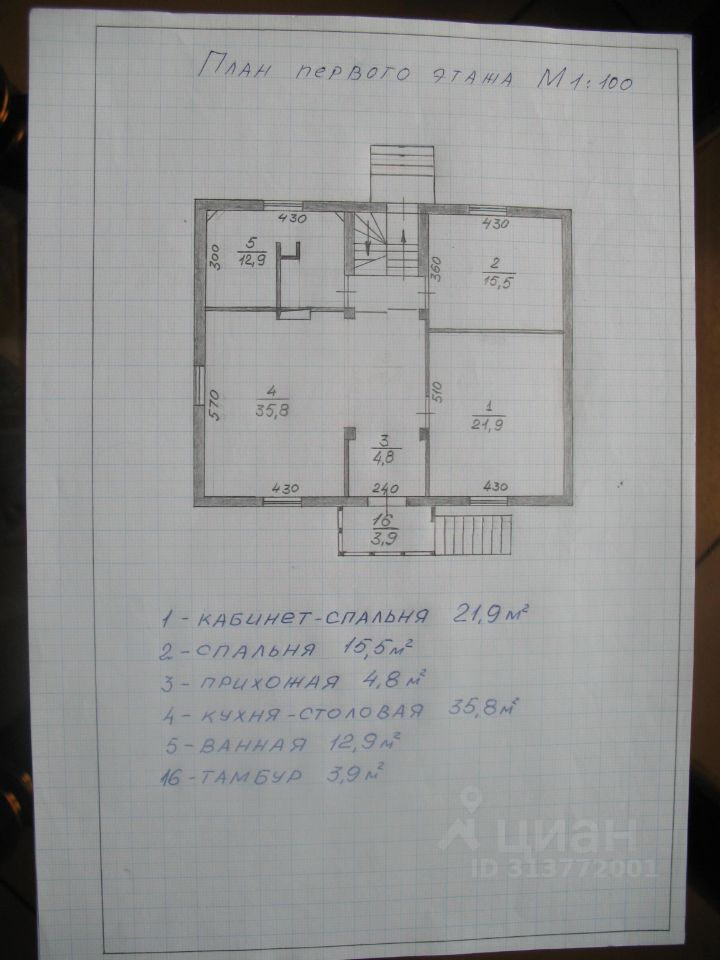 План первого этажа М 1:100
430
430
5
12,9
300
360
2
15,5
4
35,8
570
510
1
21,9
3
4,8
430
240
430
16
3,9
1 - КАБИНЕТ-СПАЛЬНЯ 21,9 м²
2 - СПАЛЬНЯ 15,5 м²
3 - ПРИХОЖАЯ 4,8 м²
4 - КУХНЯ-СТОЛОВАЯ 35,8 м²
5 - ВАННАЯ 12,9 м²
16 - ТАМБУР 3,9 м²
циан
ID 313772001